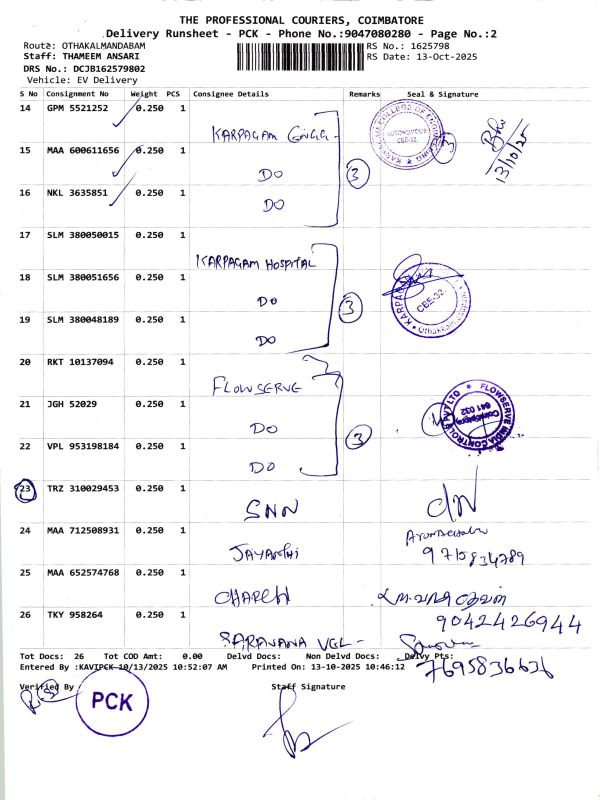 THE PROFESSIONAL COURIERS, COIMBATORE
Delivery Runsheet - PCK - Phone No.:9047080280 - Page No.:2
Route: OTHAKALMANDABAM
RS No.: 1625798
Staff: THAMEEM ANSARI
RS Date: 13-Oct-2025
DRS No.: DCJB162579802
Vehicle: EV Delivery
S No Consignment No Weight PCS Consignee Details Remarks Seal & Signature
14 GPM 5521252 0.250 1 KARPAGAM Engg -
15 MAA 600611656 0.250 1 DO 3 3 13/10/25
16 NKL 3635851 0.250 1 DO
17 SLM 380050015 0.250 1 KARPAGAM HOSPITAL
18 SLM 380051656 0.250 1 DO 3 CBE-32
19 SLM 380048189 0.250 1 DO
20 RKT 10137094 0.250 1 FLOWSERVE
21 JGH 52029 0.250 1 DO
22 VPL 953198184 0.250 1 DO 3
23 TRZ 310029453 0.250 1 SNN
24 MAA 712508931 0.250 1 JAYANTHI 9715834789
25 MAA 652574768 0.250 1
9042426944
26 TKY 958264 0.250 1 SARAVANA VGL -
Tot Docs: 26 Tot COD Amt: 0.00 Delvd Docs: Non Delvd Docs: Delvy Pts:
7695836636
Entered By :KAVIPCK 10/13/2025 10:52:07 AM Printed On: 13-10-2025 10:46:12
Verified By Staff Signature
PCK